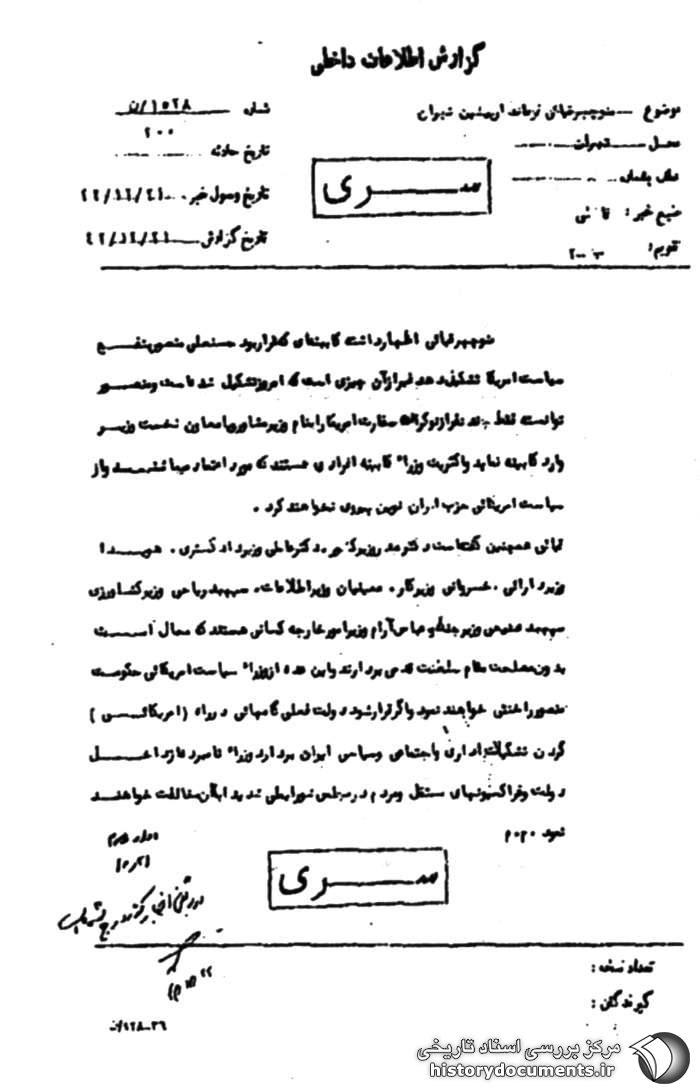 گزارش اطلاعات داخلی
موضوع منوچهر قبائی فرماند تهران
شماره ۱۵۲۸/ن
۲۰۰
محل تهران
تاریخ حادثه
سری
تاریخ وصول خبر ۴۲/۱۲/۲۱
منبع خبر :
تاریخ گزارش ۴۲/۱۲/۲۱
تقویم:
منوچهر اظهار داشت کابینه‌ای که قرار بود حسنعلی منصور بنفع
سیاست امریکا تشکیل دهد غیر از آن چیزی است که امروز تشکیل شده است و منصور
توانسته فقط چند نفر از نوکران سفارت امریکا را بنام وزیر مشاور و یا معاون نخست وزیر
وارد کابینه نماید و اکثریت وزراء کابینه افرادی هستند که مورد اعتماد میباشند و از
سیاست امریکائی حزب ایران نوین پیروی نخواهند کرد .
همچنین گفته است دکتر صدر وزیر کشور . دکتر عاملی وزیر دادگستری . هویدا
وزیر دارائی . خسروانی وزیر کار . معینیان وزیر اطلاعات . سپهبد ریاحی وزیر کشاورزی
سپهبد صنیعی وزیر جنگ و عباس آرام وزیر امور خارجه کسانی هستند که محال است
بدون مصلحت مقام سلطنت قدمی بردارند و این عده از وزراء سیاست امریکائی حکومت
منصور را خنثی خواهند نمود و اگر قرار شود دولت فعلی گامهائی در راه (امریکائیسی)
کردن تشکیلات اداری و اجتماعی و سیاسی ایران بردارد وزراء نامبرده از داخل
دولت و فراکسیونهای مستقل و مردم در مجلس شورایملی شدیداً بآن مخالفت خواهند
نمود
سری
تعداد نسخه :
گیرندگان :
مرکز بررسی اسناد تاریخی
historydocuments.ir